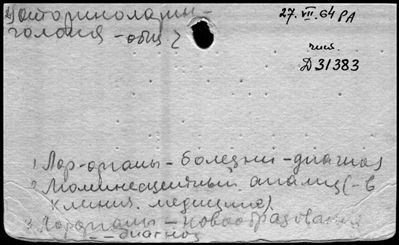 Оториноларин-
гология - общ 2
27.VII.64 РА
Д 31383
1 Лор-органы - болезни - диагноз
2. Люминесцентный анализ (- в
клинич. медицине)
3 Лор-органы - новообразования
- диагноз